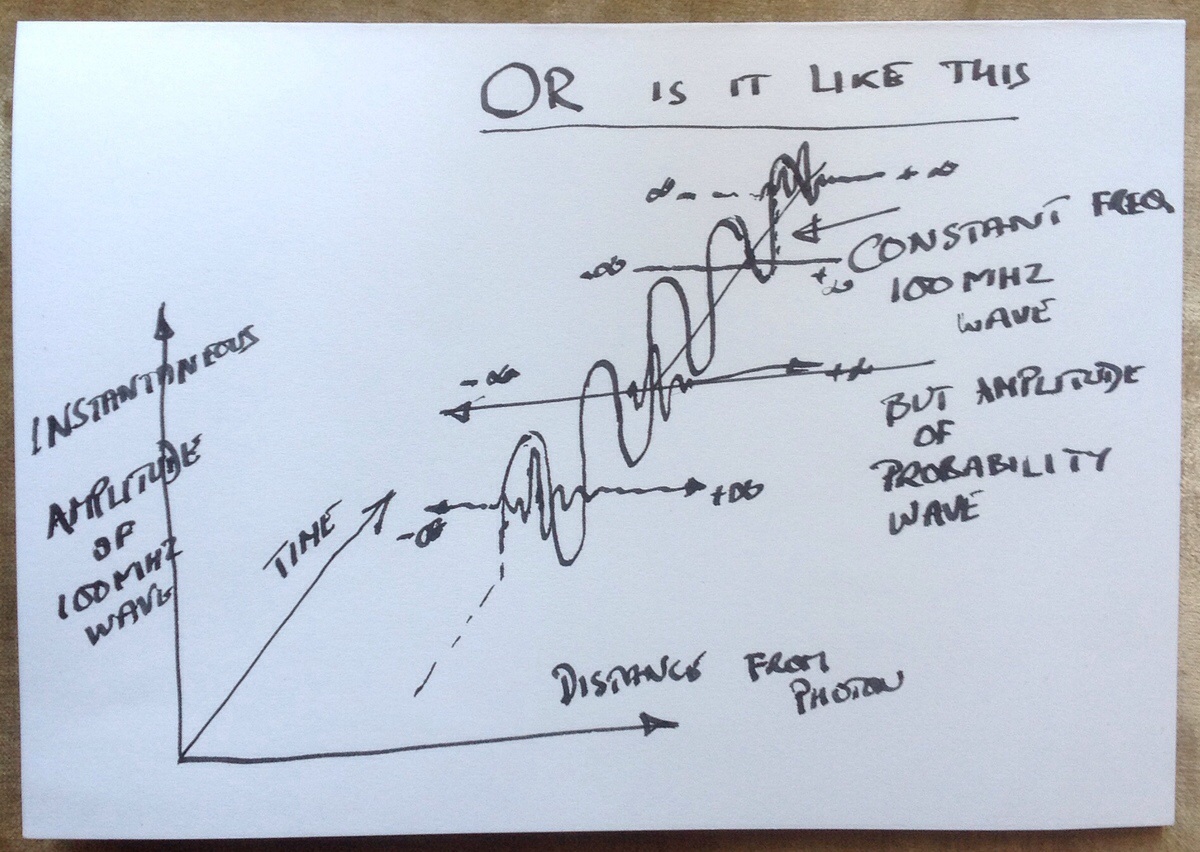 OR IS IT LIKE THIS
∞ + ∞
CONSTANT FREQ
100 MHZ
WAVE
-∞ +∞
-∞ +∞
BUT AMPLITUDE
OF
PROBABILITY
WAVE
-∞ +∞
INSTANTONEOUS
AMPLITUDE
OF
100 MHZ
WAVE
TIME
DISTANCE FROM
PHOTON